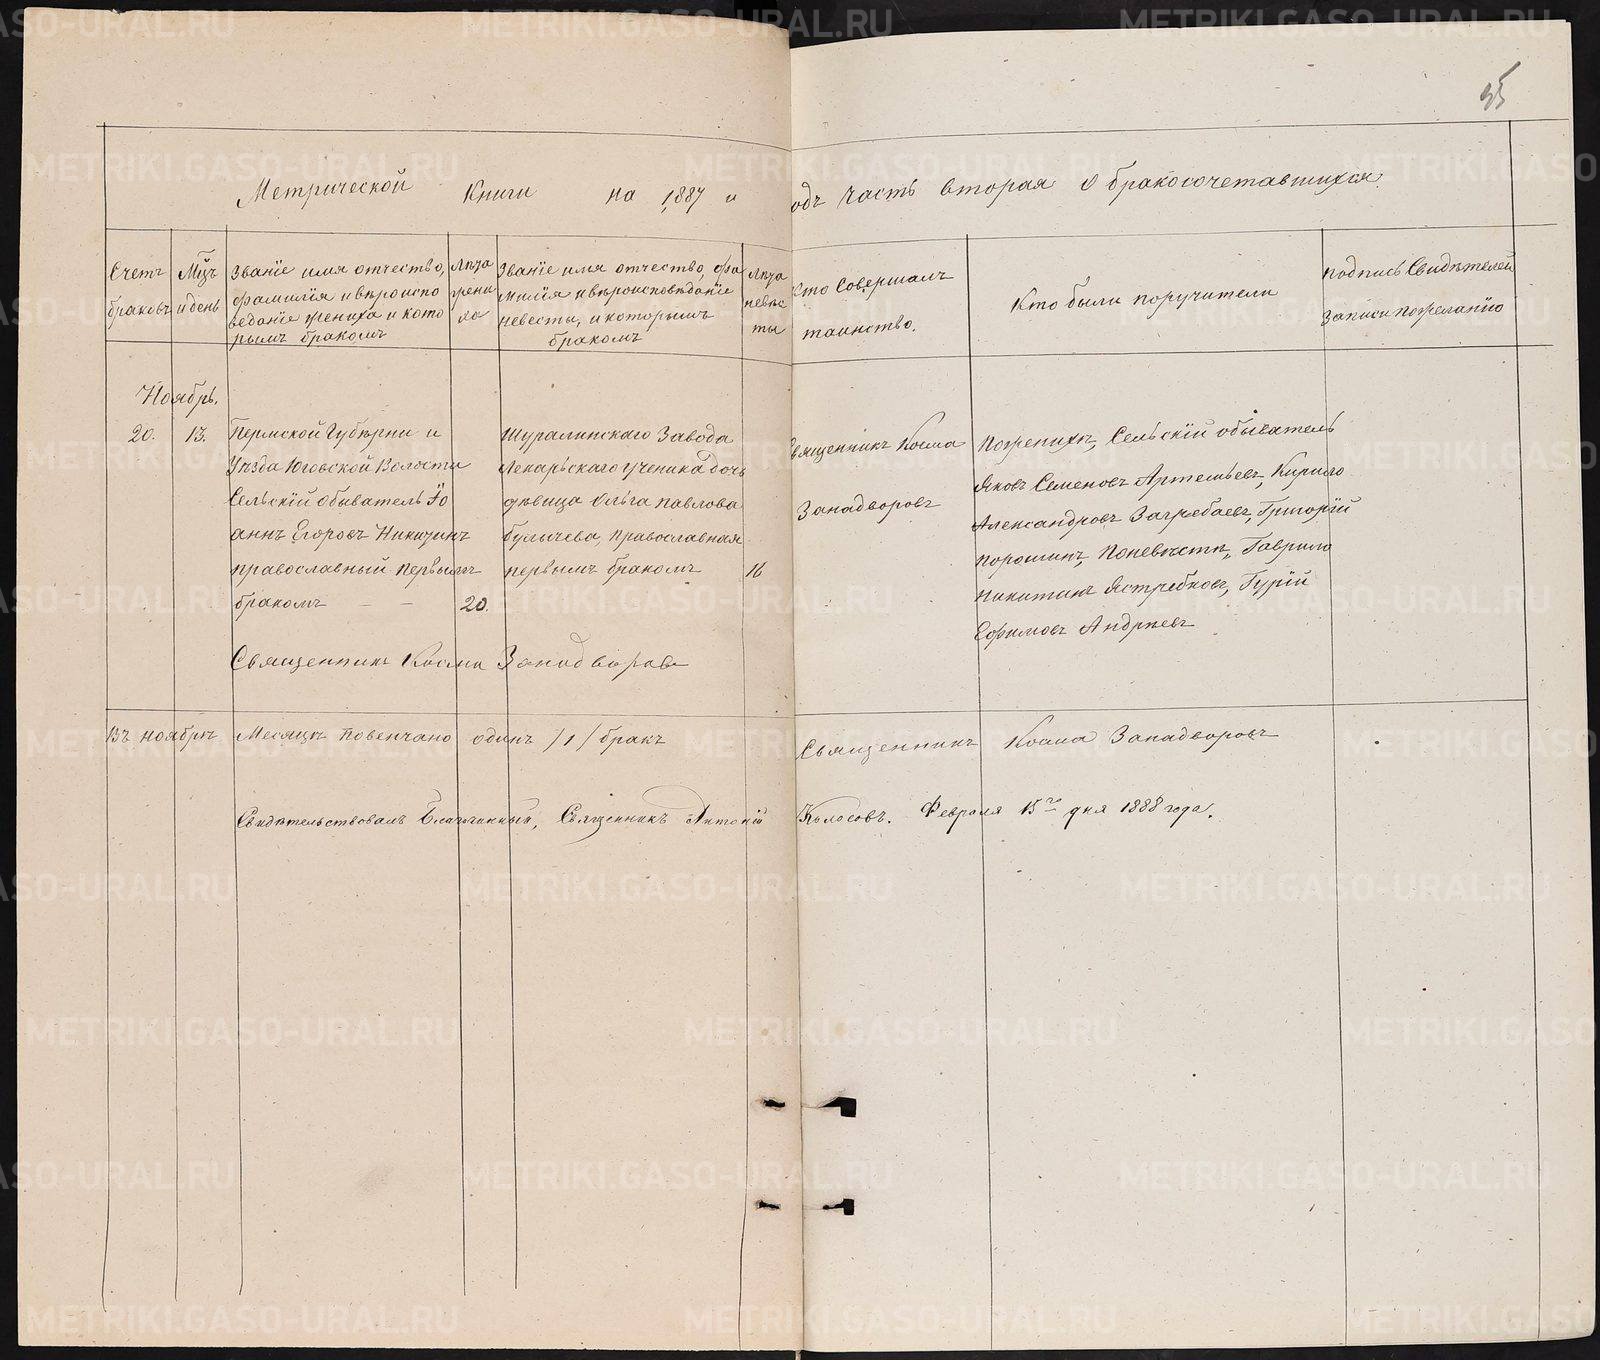 95
Метрической Книги на 1887 г
одъ часть вторая о бракосочетавшихся.
Счетъ
браковъ
Мцъ
и день
Званіе имя отчество,
фамилія и вѣроиспо
веданіе жениха и кото
рымъ бракомъ
Лѣта
жени
ха
Званіе имя отчество, фа
милія и вѣроисповѣданіе
невести, и которымъ
бракомъ
Лѣта
невѣс
ты
Кто совершалъ
таинство.
Кто были поручители
подпись Свидѣтелей
Записи по желанію
Ноябрь.
20. 13.
Пермской Губѣрни и
Уѣзда Юговской Волости
Сельскій обыватель Іо
аннъ Егоровъ Никизинъ
православный первымъ
бракомъ — — 20.
Шуралинскаго Завода
Лекарьскаго ученика дочь
дѣвица Ольга Павлова
Булычева, православная
первымъ бракомъ 16
Священникъ Косма
Западворовъ
Поженихѣ, Сельскій обыватель
Яковъ Семеновъ Артемьевъ, Кирило
Александровъ Загребаевъ, Григорій
Порошинъ, Поневѣсти, Гаврило
Никитинъ Ястребковъ, Гурій
Ефимовъ Андрѣевъ
Священникъ Косма Западворовъ
Въ ноябрѣ Месяцѣ повенчано одинъ /1/ бракъ
Священникъ Косма Западворовъ
Свидѣтельствовалъ Благочинный, Священникъ Антоній
Колосовъ. Февраля 15го дня 1888 года.
METRIKI.GASO-URAL.RU